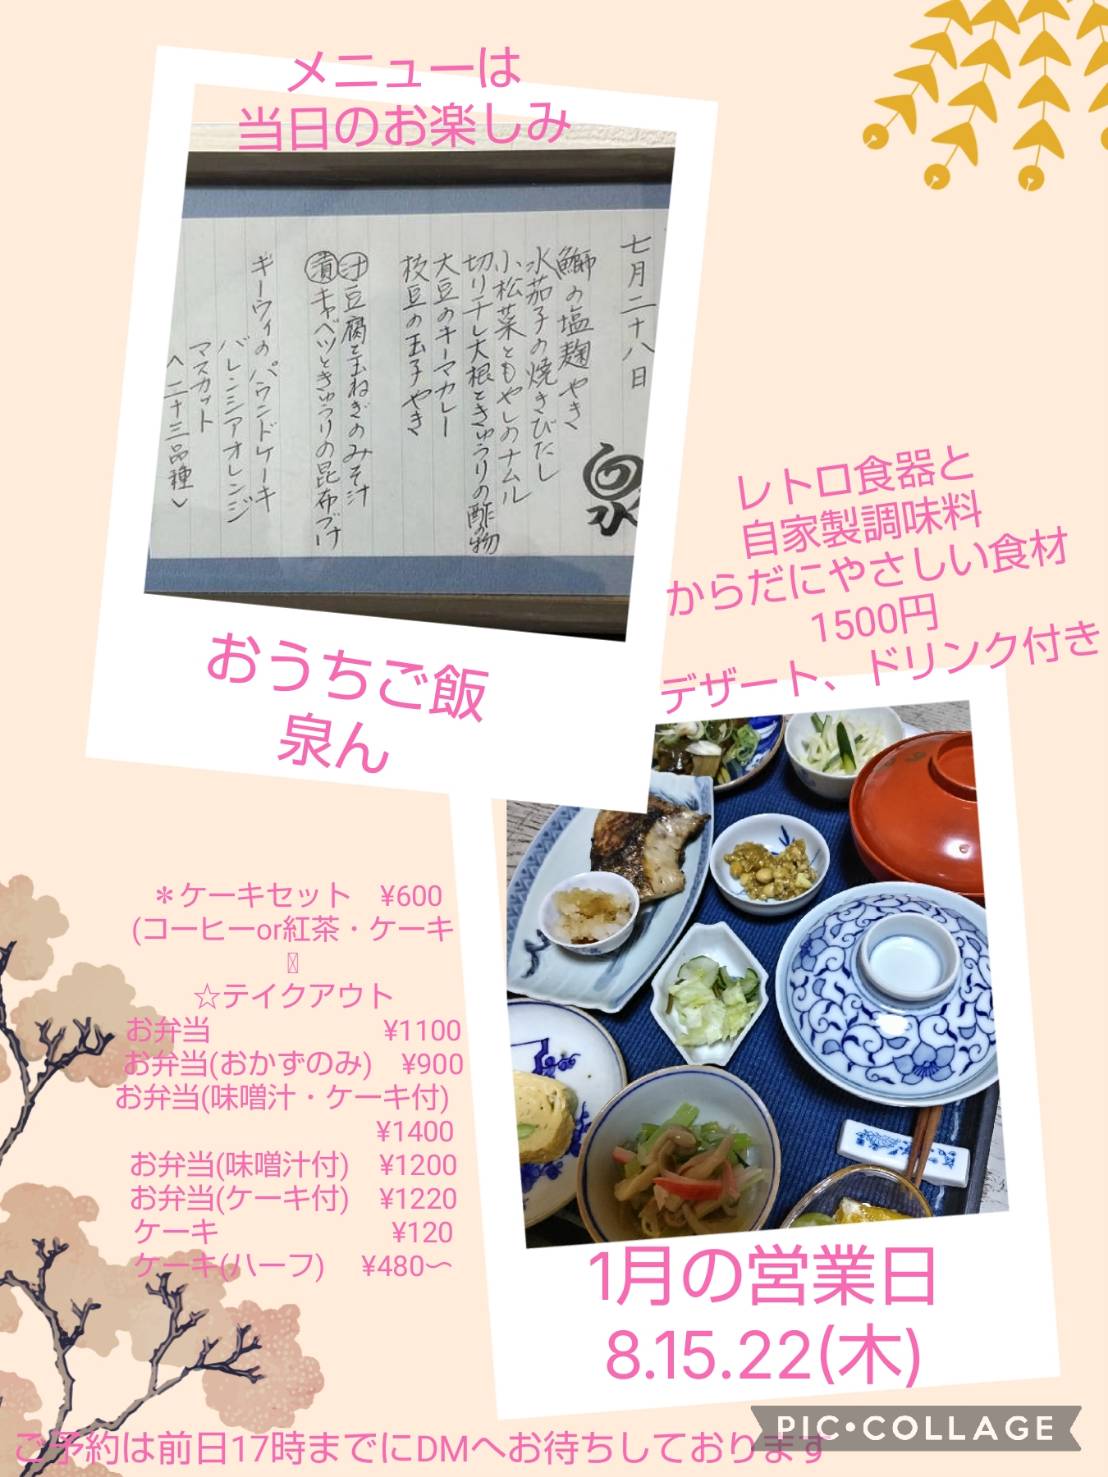 メニューは
当日のお楽しみ
七月二十八日
鰤の塩麹やき
水茄子の焼きびたし
小松菜ともやしのナムル
切り干し大根ときゅうりの酢の物
大豆のキーマカレー
枝豆の玉子やき
汁 豆腐と玉ねぎのみそ汁
漬 キャベツときゅうりの昆布づけ
キーウィのパウンドケーキ
バレンシアオレンジ
マスカット
(二十三品種)
泉
おうちご飯
泉ん
レトロ食器と
自家製調味料
からだにやさしい食材
1500円
デザート、ドリンク付き
＊ケーキセット ¥600
(コーヒーor紅茶・ケーキ
☆テイクアウト
お弁当 ¥1100
お弁当(おかずのみ) ¥900
お弁当(味噌汁・ケーキ付)
¥1400
お弁当(味噌汁付) ¥1200
お弁当(ケーキ付) ¥1220
ケーキ ¥120
ケーキ(ハーフ) ¥480〜
1月の営業日
8.15.22(木)
ご予約は前日17時までにDMへお待ちしております
PIC•COLLAGE